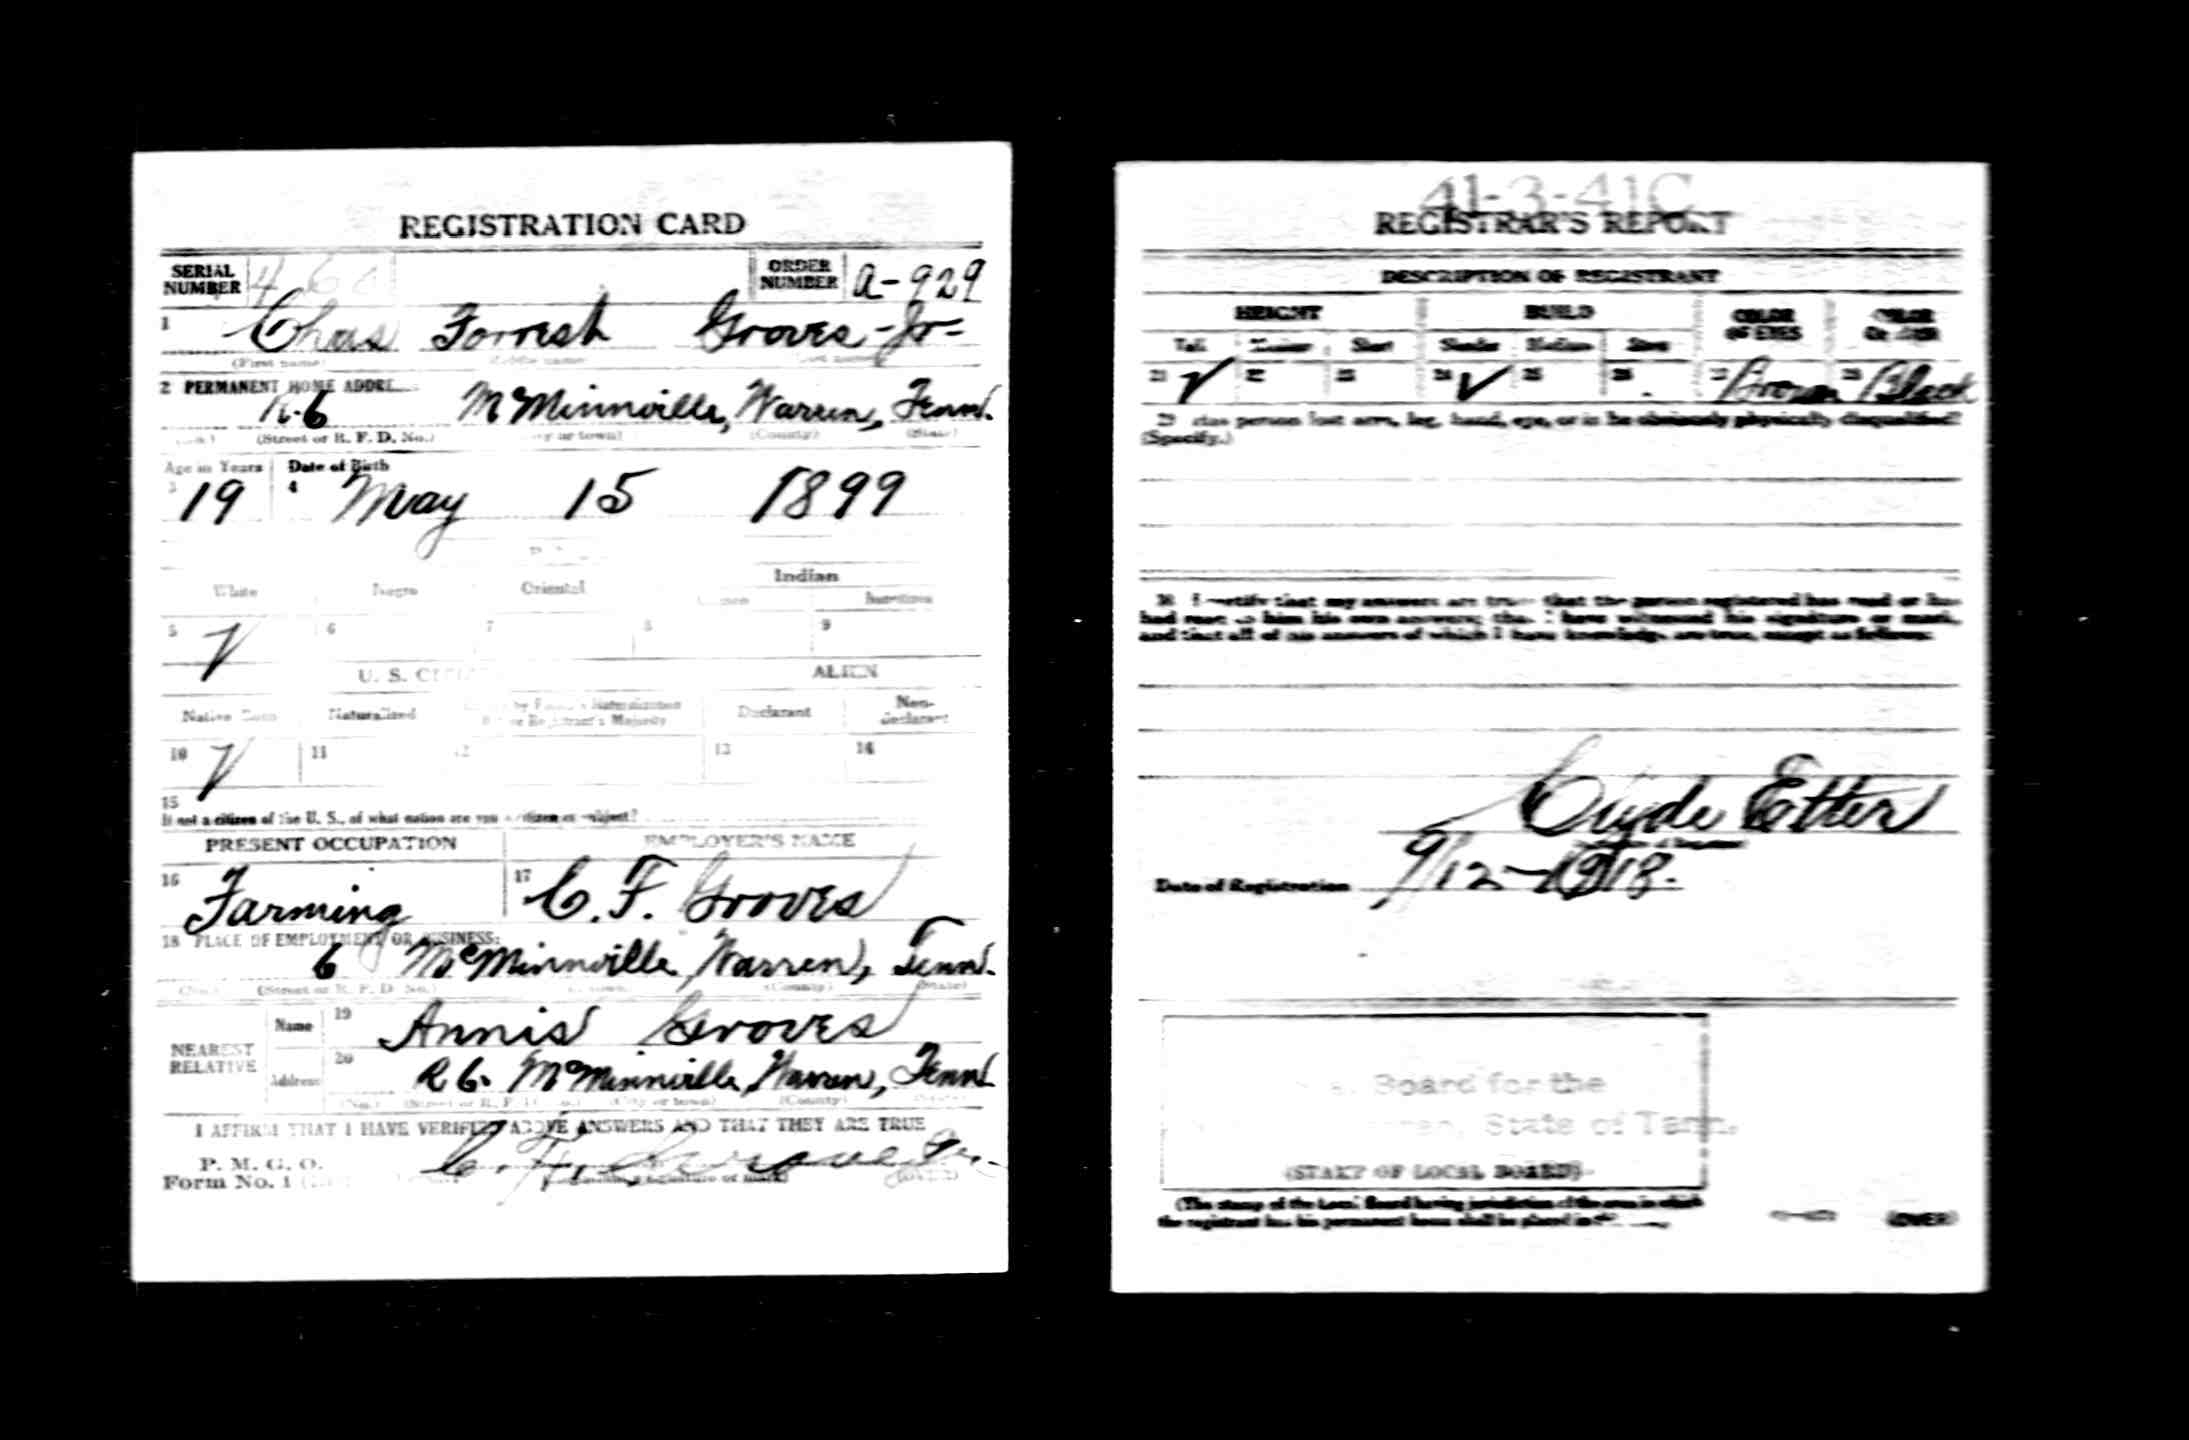 REGISTRATION CARD
SERIAL NUMBER
ORDER NUMBER a-929
1 Chas Forrest Groves-Jr-
(First name) (Middle name) (Last name)
2 PERMANENT HOME ADDRE
R-6 McMinnville, Warren, Tenn.
(Street or R. F. D. No.) (County) (State)
Age in Years Date of Birth
3 19 4 May 15 1899
Indian
White Negro Oriental
5 V 6 7 8 9
U. S. ALIEN
Native Born Naturalized Declarant Non-declarant
10 V 11 12 13 14
15
If not a citizen of the U. S., of what nation are you a citizen or subject?
PRESENT OCCUPATION EMPLOYER'S NAME
16 Farming 17 C. F. Groves
18 PLACE OF EMPLOYMENT OR BUSINESS:
6 McMinnville Warren, Tenn.
(No.) (Street or R. F. D. No.) (County) (State)
NEAREST RELATIVE
Name 19 Annis Groves
Address 20 R 6. McMinnville, Warren, Tenn
(No.) (City or town) (County) (State)
I AFFIRM THAT I HAVE VERIFIED ABOVE ANSWERS AND THAT THEY ARE TRUE
P. M. G. O.
Form No. 1
C. F. Groves Jr.
41-3-41C
REGISTRAR'S REPORT
DESCRIPTION OF REGISTRANT
HEIGHT BUILD COLOR OF EYES COLOR OF HAIR
Tall Medium Short Slender Medium Stout
21 V 22 23 24 V 25 26 27 Brown 28 Black
29 Has person lost arm, leg, hand, eye, or is he obviously physically disqualified?
(Specify.)
30 I certify that my answers are true that the person registered has read or has
had read to him his own answers; that I have witnessed his signature or mark,
and that all of his answers of which I have knowledge are true, except as follows:
Clyde Etter
Date of Registration 9/12-1918.
Board for the
State of Tenn.
(STAMP OF LOCAL BOARD)
(The stamp of the Local Board having jurisdiction of the area in which
the registrant has his permanent home shall be placed in
(OVER)